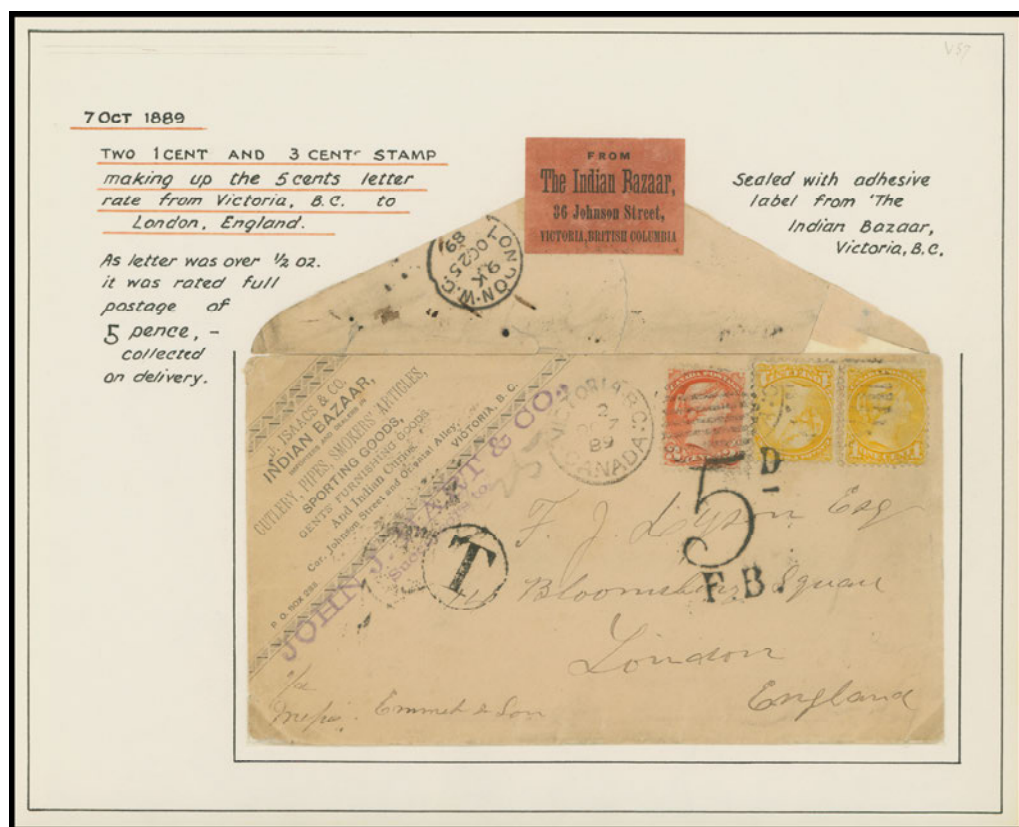 V37
7 OCT 1889
TWO 1 CENT AND 3 CENT STAMP
making up the 5 cents letter
rate from Victoria, B.C. to
London, England.
As letter was over 1/2 oz.
it was rated full
postage of
5 pence, -
collected
on delivery.
FROM
The Indian Bazaar,
36 Johnson Street,
VICTORIA, BRITISH COLUMBIA
Sealed with adhesive
label from 'The
Indian Bazaar,
Victoria, B.C.
LONDON. W.C.
9 K
OC 25
89
J. ISAACS & CO.
INDIAN BAZAAR,
IMPORTERS AND DEALERS IN
CUTLERY, PIPES, SMOKERS' ARTICLES,
SPORTING GOODS,
GENTS' FURNISHING Goods
And Indian Curios,
Cor. Johnson Street and Oriental Alley,
VICTORIA, B.C.
P. O. BOX 288
JOHN J. HART & CO.,
Successors to
VICTORIA. B.C.
2
OC 7
89
CANADA
CANADA POSTAGE
1
T
5 D
F.B.
F. J. Dyson Esq
Bloomsbury Square
London
England
c/o
Messrs. Emmet & Son